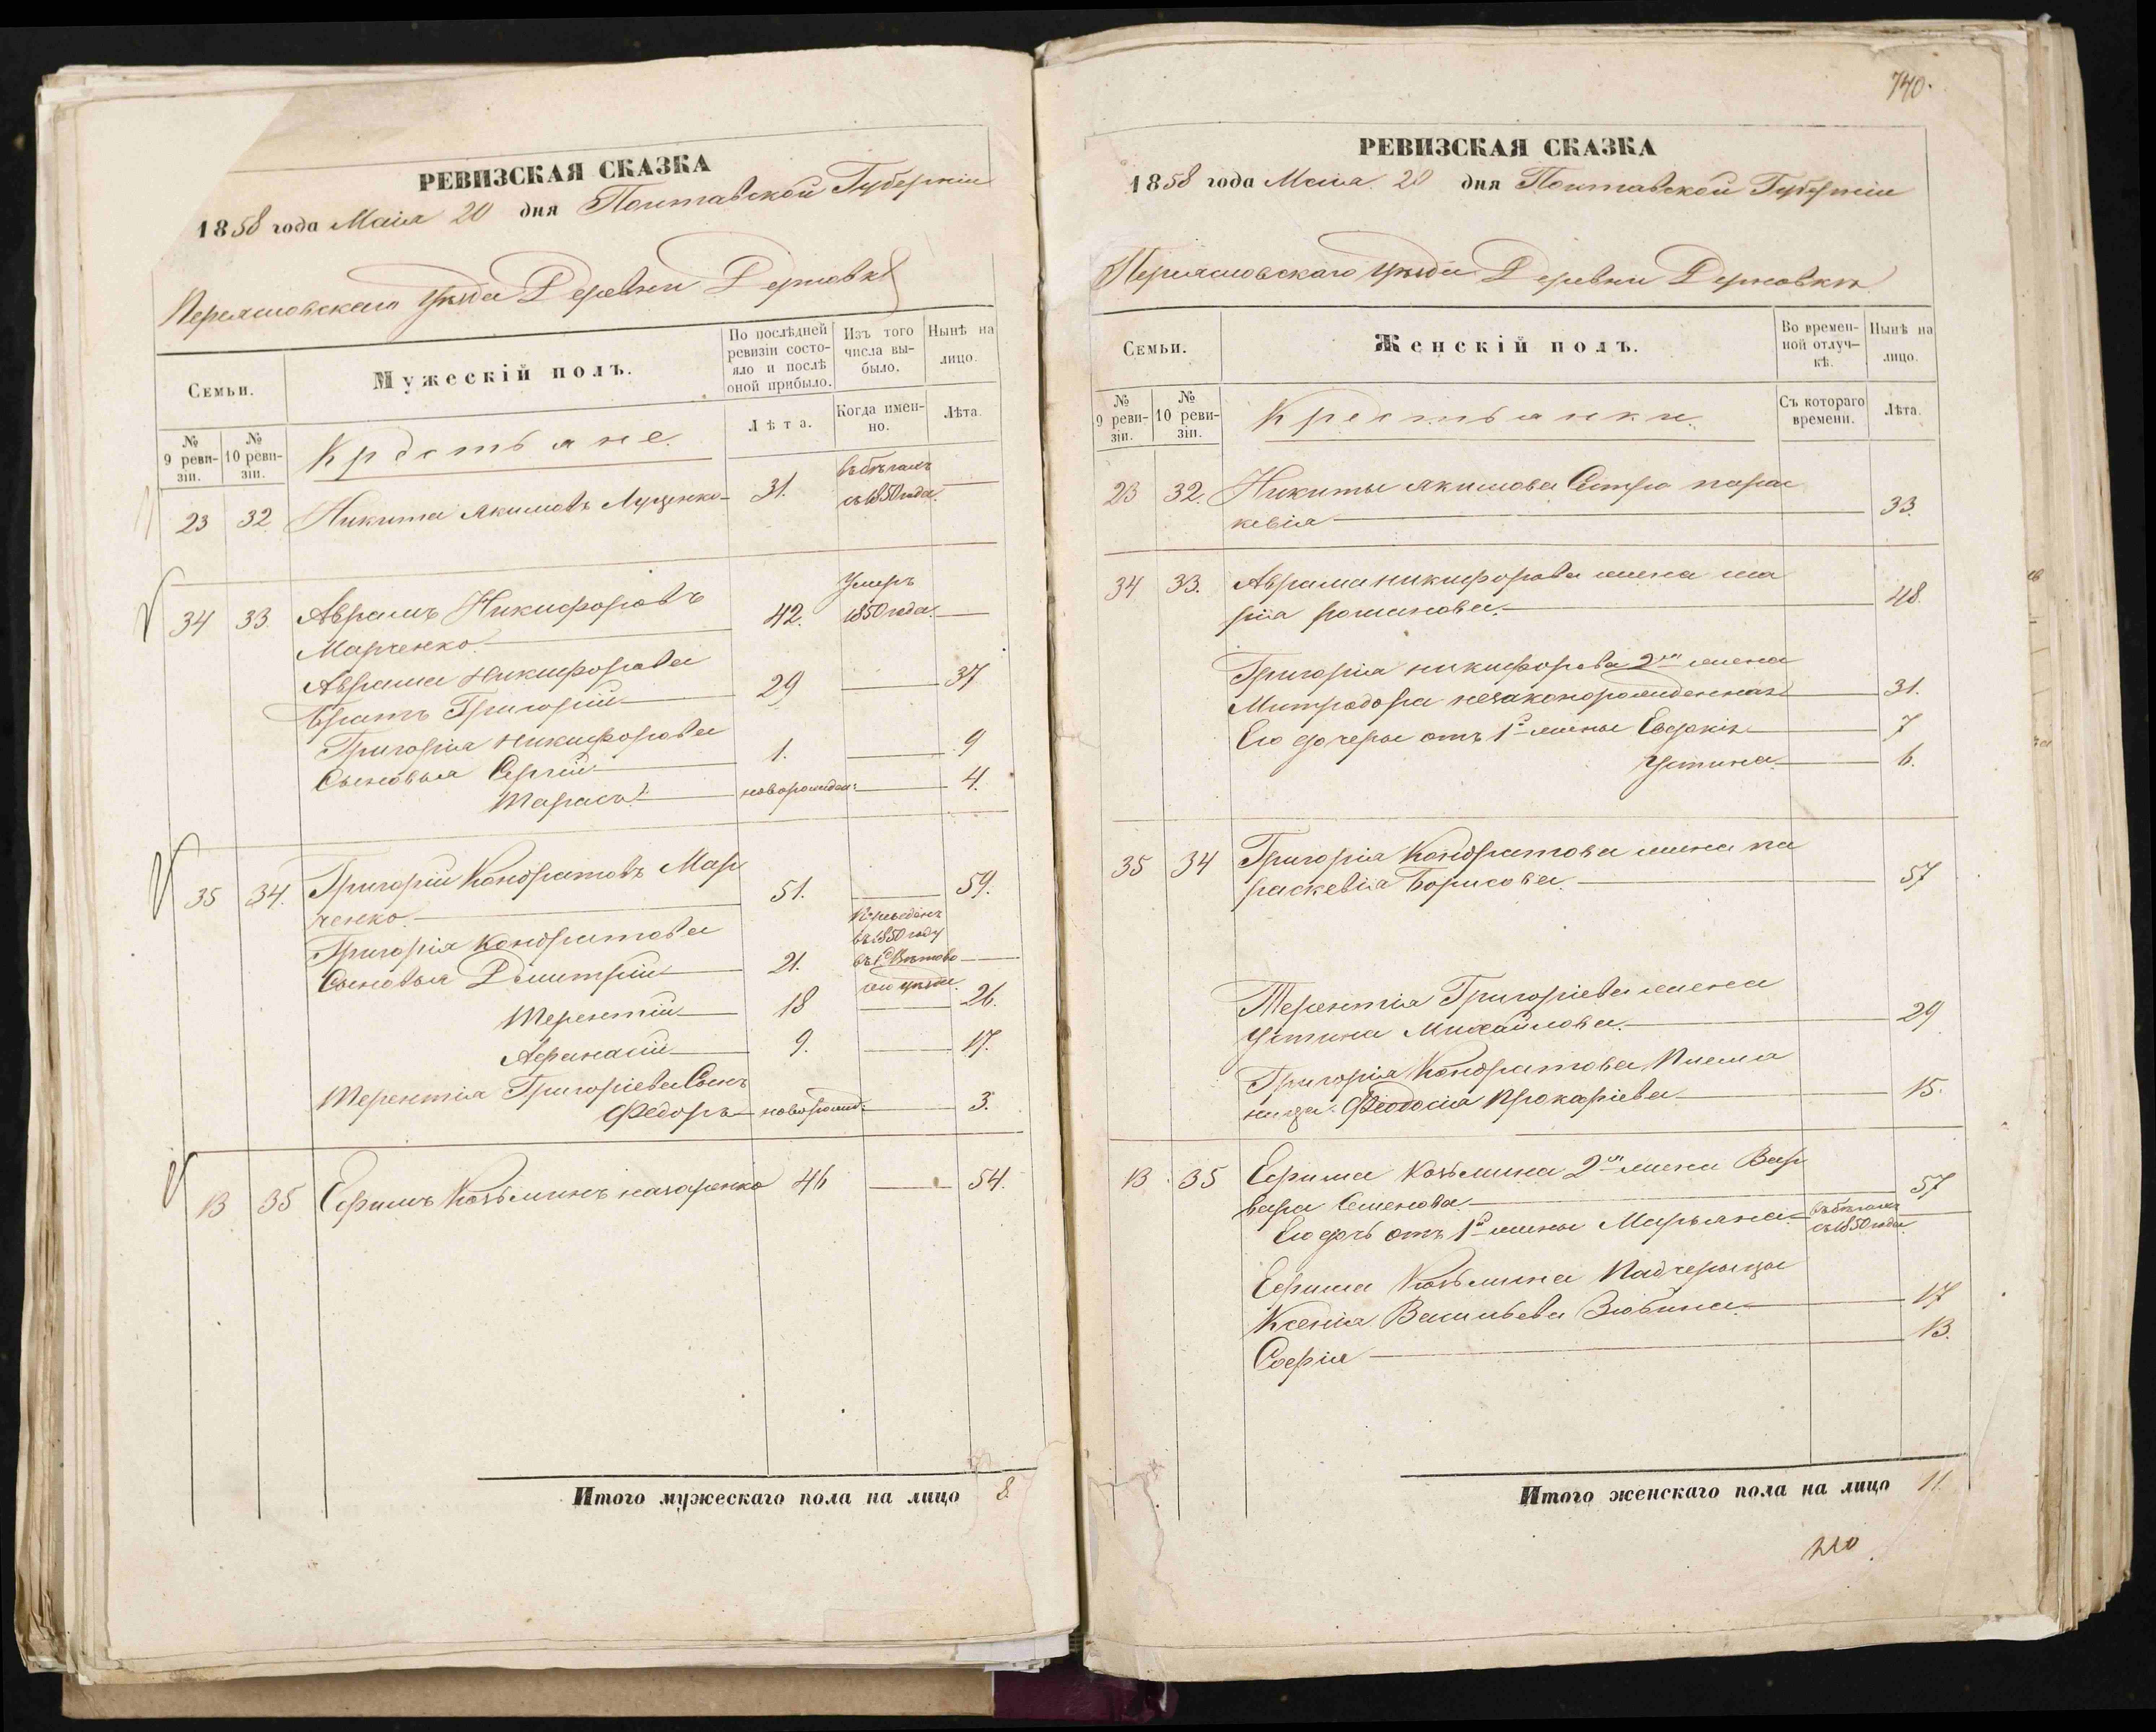 РЕВИЗСКАЯ СКАЗКА
1858 года Маія 20 дня Полтавской Губерніи
Переяславскаго Уѣзда Деревни Дерновки
Семьи.
Мужескій полъ.
По послѣдней ревизіи состояло и послѣ оной прибыло.
Изъ того числа выбыло.
Нынѣ на лицо.
№ 9 ревизіи.
№ 10 ревизіи.
Крестьяне.
Лѣта.
Когда именно.
Лѣта.
23 32 Никита Якимовъ Луценко 31. въ бѣгахъ
съ 1850 года.
34 33. Аврамъ Никифоровъ 42. Умеръ
Марченко. 1850 года.
Аврама Никифорова
Братъ Григорій 29 37
Григорія Никифорова
Сыновья Сергій 1. 9
Тарасъ новорожден: 4.
35 34. Григорій Кондратовъ Мар
ченко 51. 59.
Григорія Кондратова
Сыновья Дмитрій 21.
въ 1850 году
Терентій 18 26.
Афанасій 9. 17.
Терентія Григоріева Сынъ
Федоръ новорожд: 3.
13 35 Ефимъ Козьминъ назаренко 46 54.
Итого мужескаго пола на лицо 8.
740.
РЕВИЗСКАЯ СКАЗКА
1858 года Маія 20 дня Полтавской Губерніи
Переяславскаго Уѣзда Деревни Дерновки
Семьи.
Женскій полъ.
Во временной отлучкѣ.
Нынѣ на лицо.
№ 9 ревизіи.
№ 10 ревизіи.
Крестьянки.
Съ котораго времени.
Лѣта.
23 32. Никиты Якимова Сестра пара
кевія 33.
34 33. Аврама никифорова жена ма
рія романова. 48.
Григорія никифорова 2я жена
Митродора незаконорожденная 31.
Его дочеры отъ 1й жены Евдокія 7
Устина 6.
35 34 Григорія Кондратова жена па
раскевія Борисова. 57
Терентія Григоріева жена
Устина Михайлова. 29
Григорія Кондратова Племя
ница Феодосія Прокофіева 15.
13 35 Ефима Козьмина 2я жена Вар
вара Семенова. 57
Его дочь отъ 1й жены Марьяна въ бѣгахъ
съ 1850 года.
Ефима Козьмина Падчерицы
Ксенія Васильева Зюбина 17
Софія 13.
Итого женскаго пола на лицо 11.